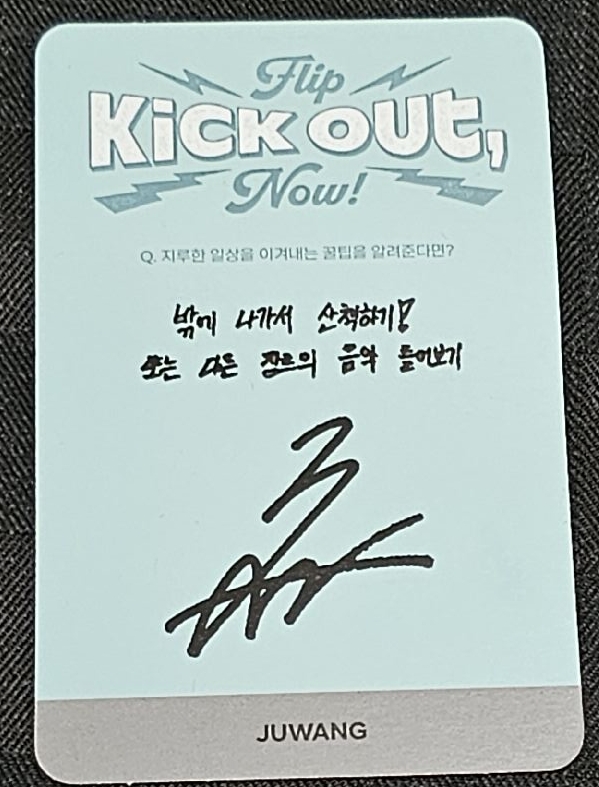 Flip
Kick out,
Now!
Q. 지루한 일상을 이겨내는 꿀팁을 알려준다면?
밖에 나가서 산책하기!
또는 다른 장르의 음악 들어보기
JUWANG